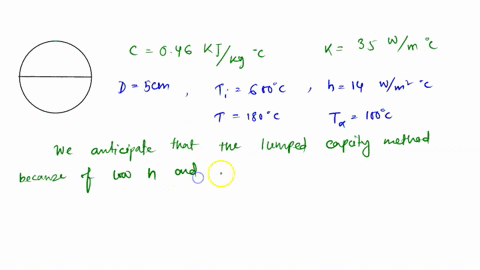 C = 0.46 KJ/kg °C K = 35 W/m °C
D = 5cm , Ti = 600°C , h = 14 W/m² °C
T = 180°C Tα = 100°C
We anticipate that the lumped capacity method
because of low h and